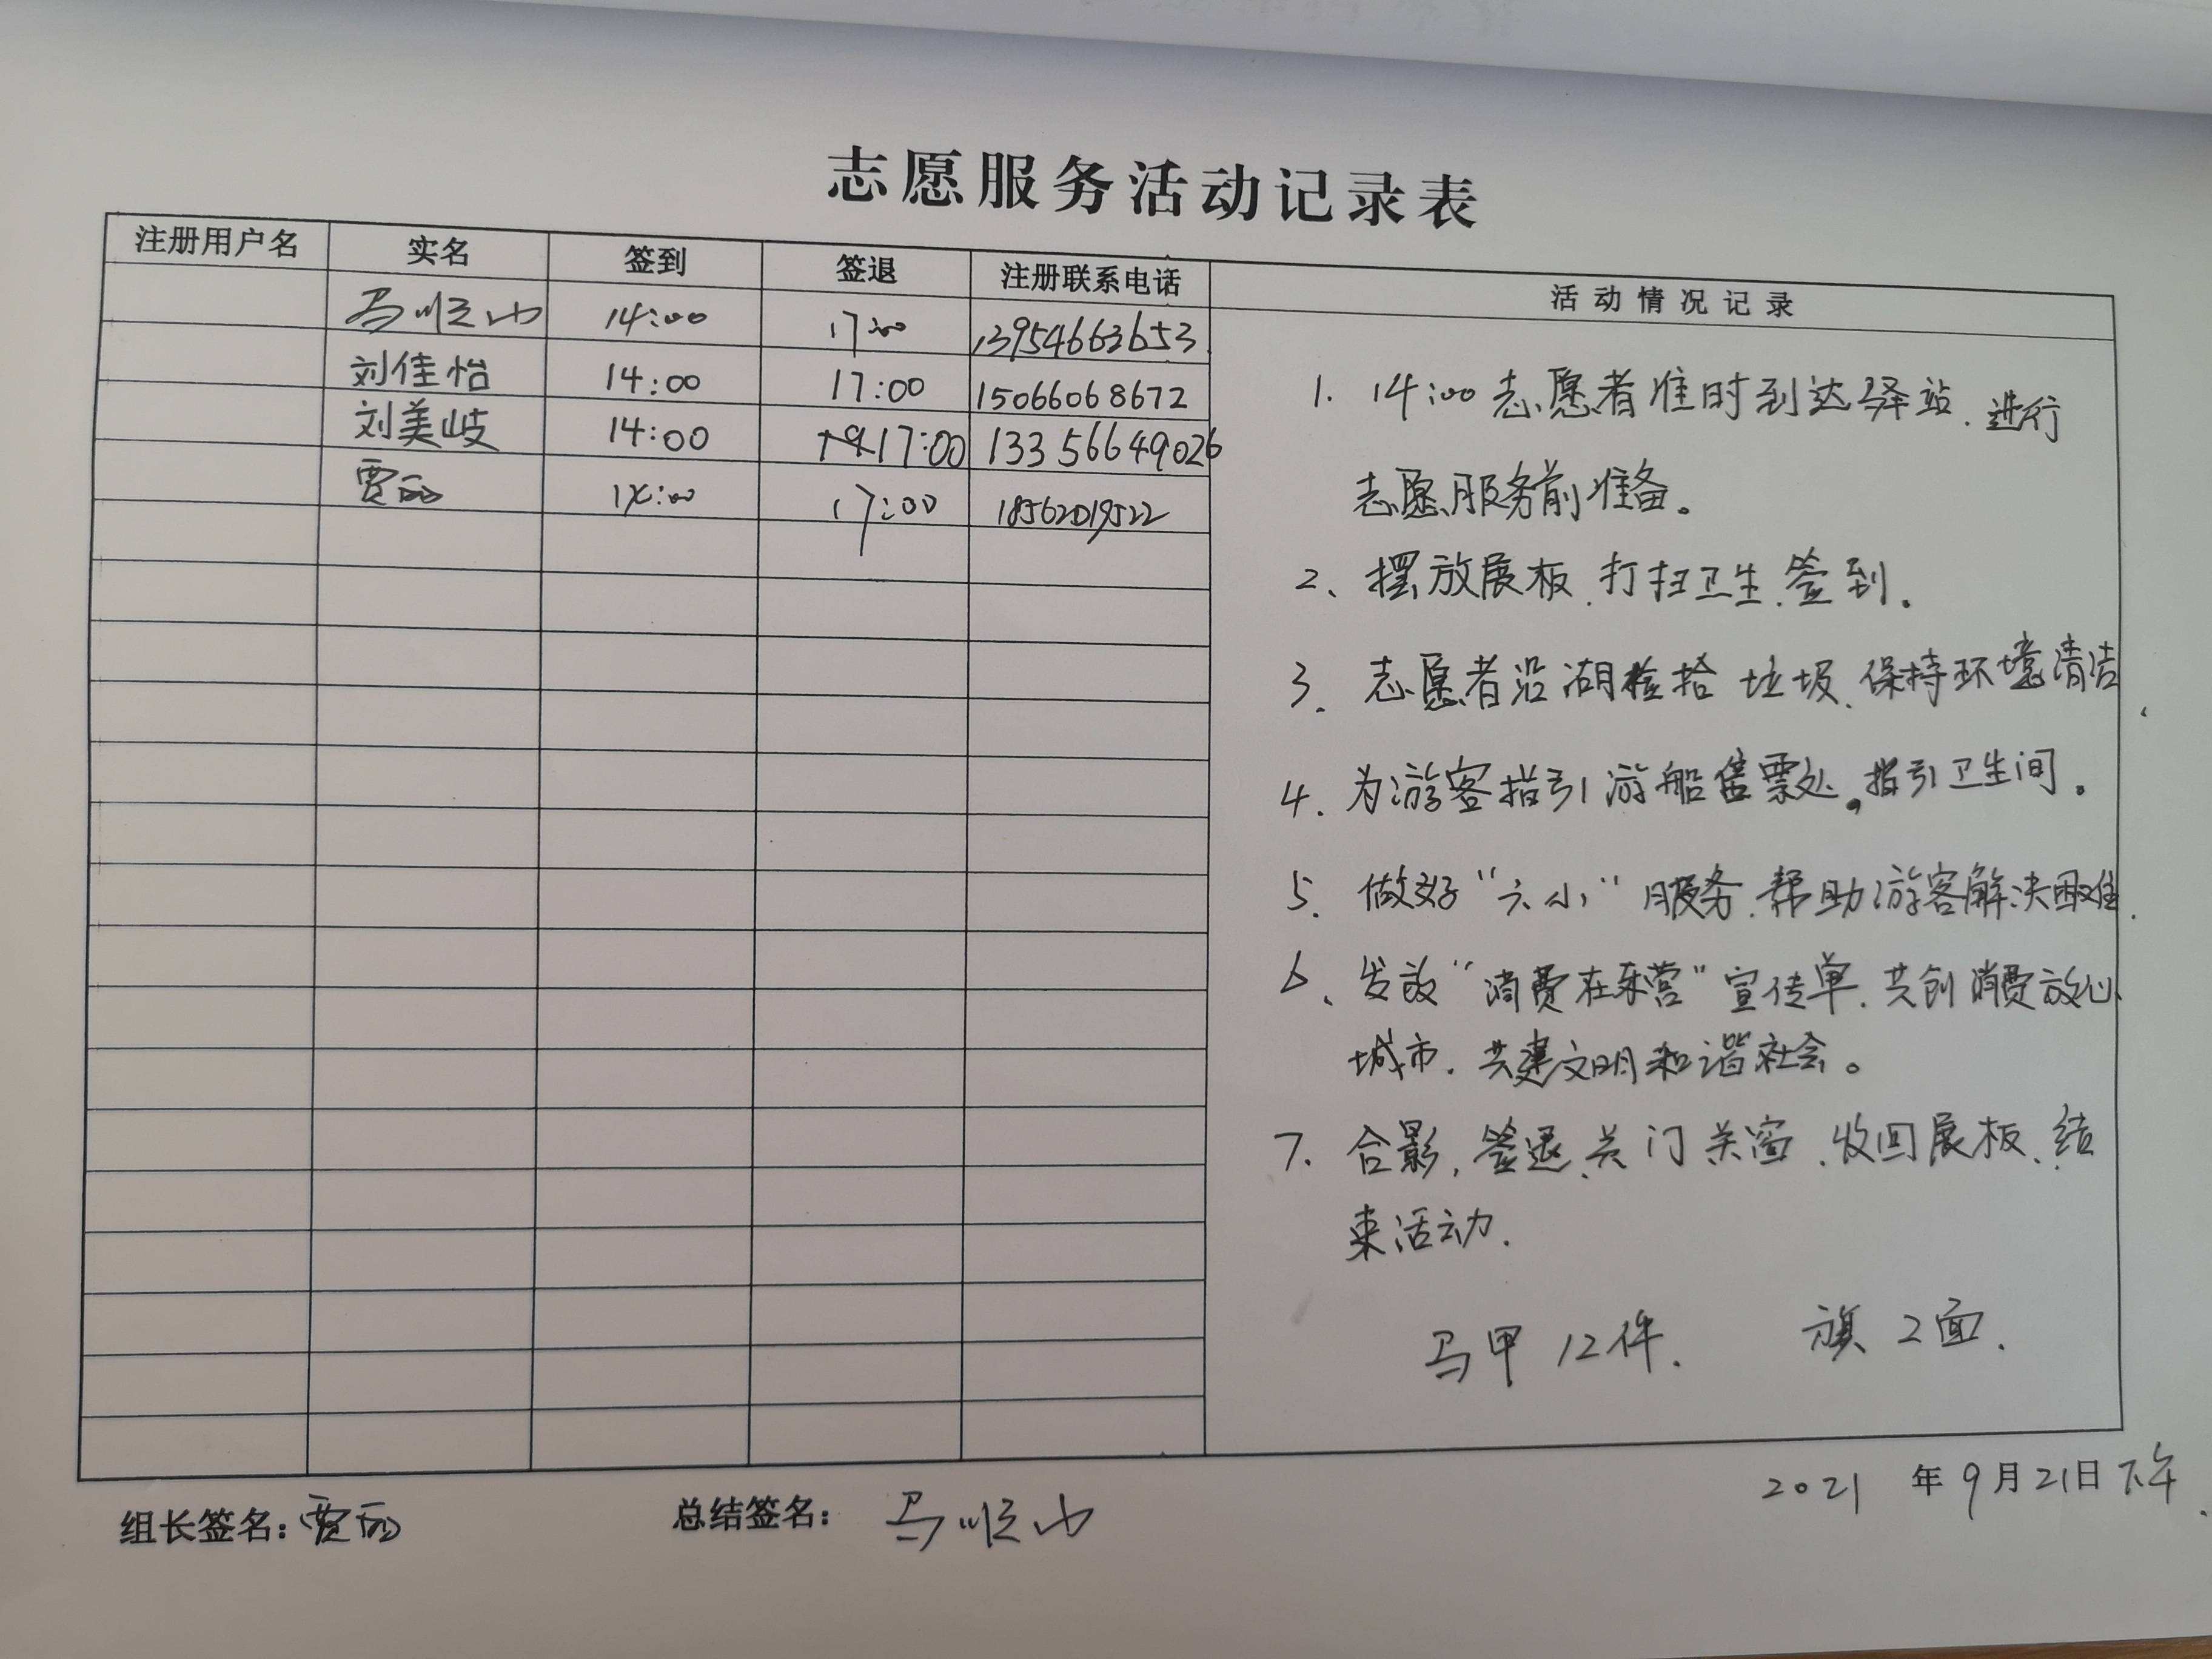 志愿服务活动记录表
注册用户名 实名 签到 签退 注册联系电话 活动情况记录
马顺山 14:00 17:00 13954663653
刘佳怡 14:00 17:00 15066068672
刘美岐 14:00 17:00 13356649026
贾丽 14:00 17:00 18562019522
1. 14:00志愿者准时到达驿站.进行
志愿服务前准备。
2、摆放展板.打扫卫生.签到.
3.志愿者沿湖捡拾垃圾.保持环境清洁.
4.为游客指引游船售票处,指引卫生间。
5.做好“六小”服务.帮助游客解决困难.
6、发放“消费在东营”宣传单.共创消费放心
城市.共建文明和谐社会。
7.合影,签退.关门关窗.收回展板.结
束活动.
马甲12件. 旗2面.
2021年9月21日下午.
组长签名:贾丽 总结签名: 马顺山